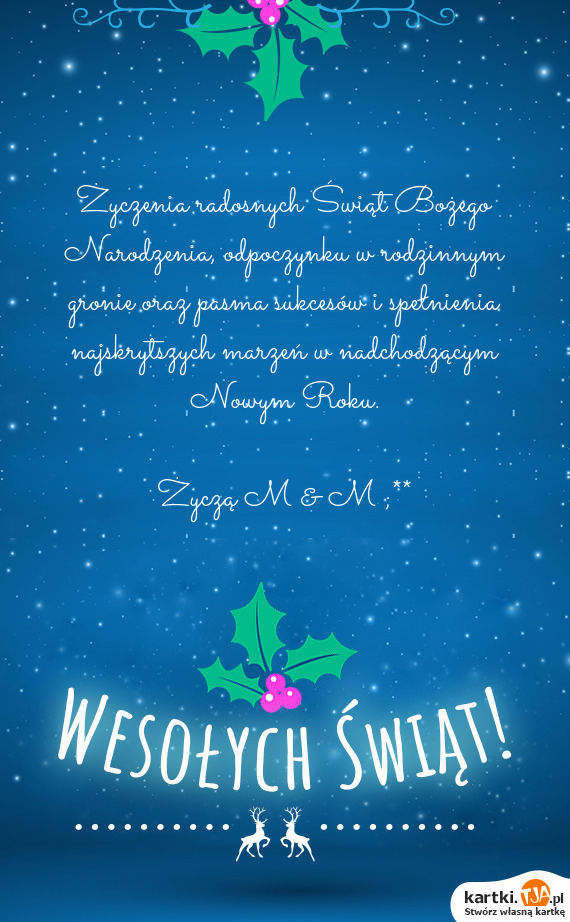 Życzenia radosnych Świąt Bożego
Narodzenia, odpoczynku w rodzinnym
gronie oraz pasma sukcesów i spełnienia
najskrytszych marzeń w nadchodzącym
Nowym Roku.
Życzą M & M ;**
Wesołych Świąt!
kartki.TJA.pl
Stwórz własną kartkę